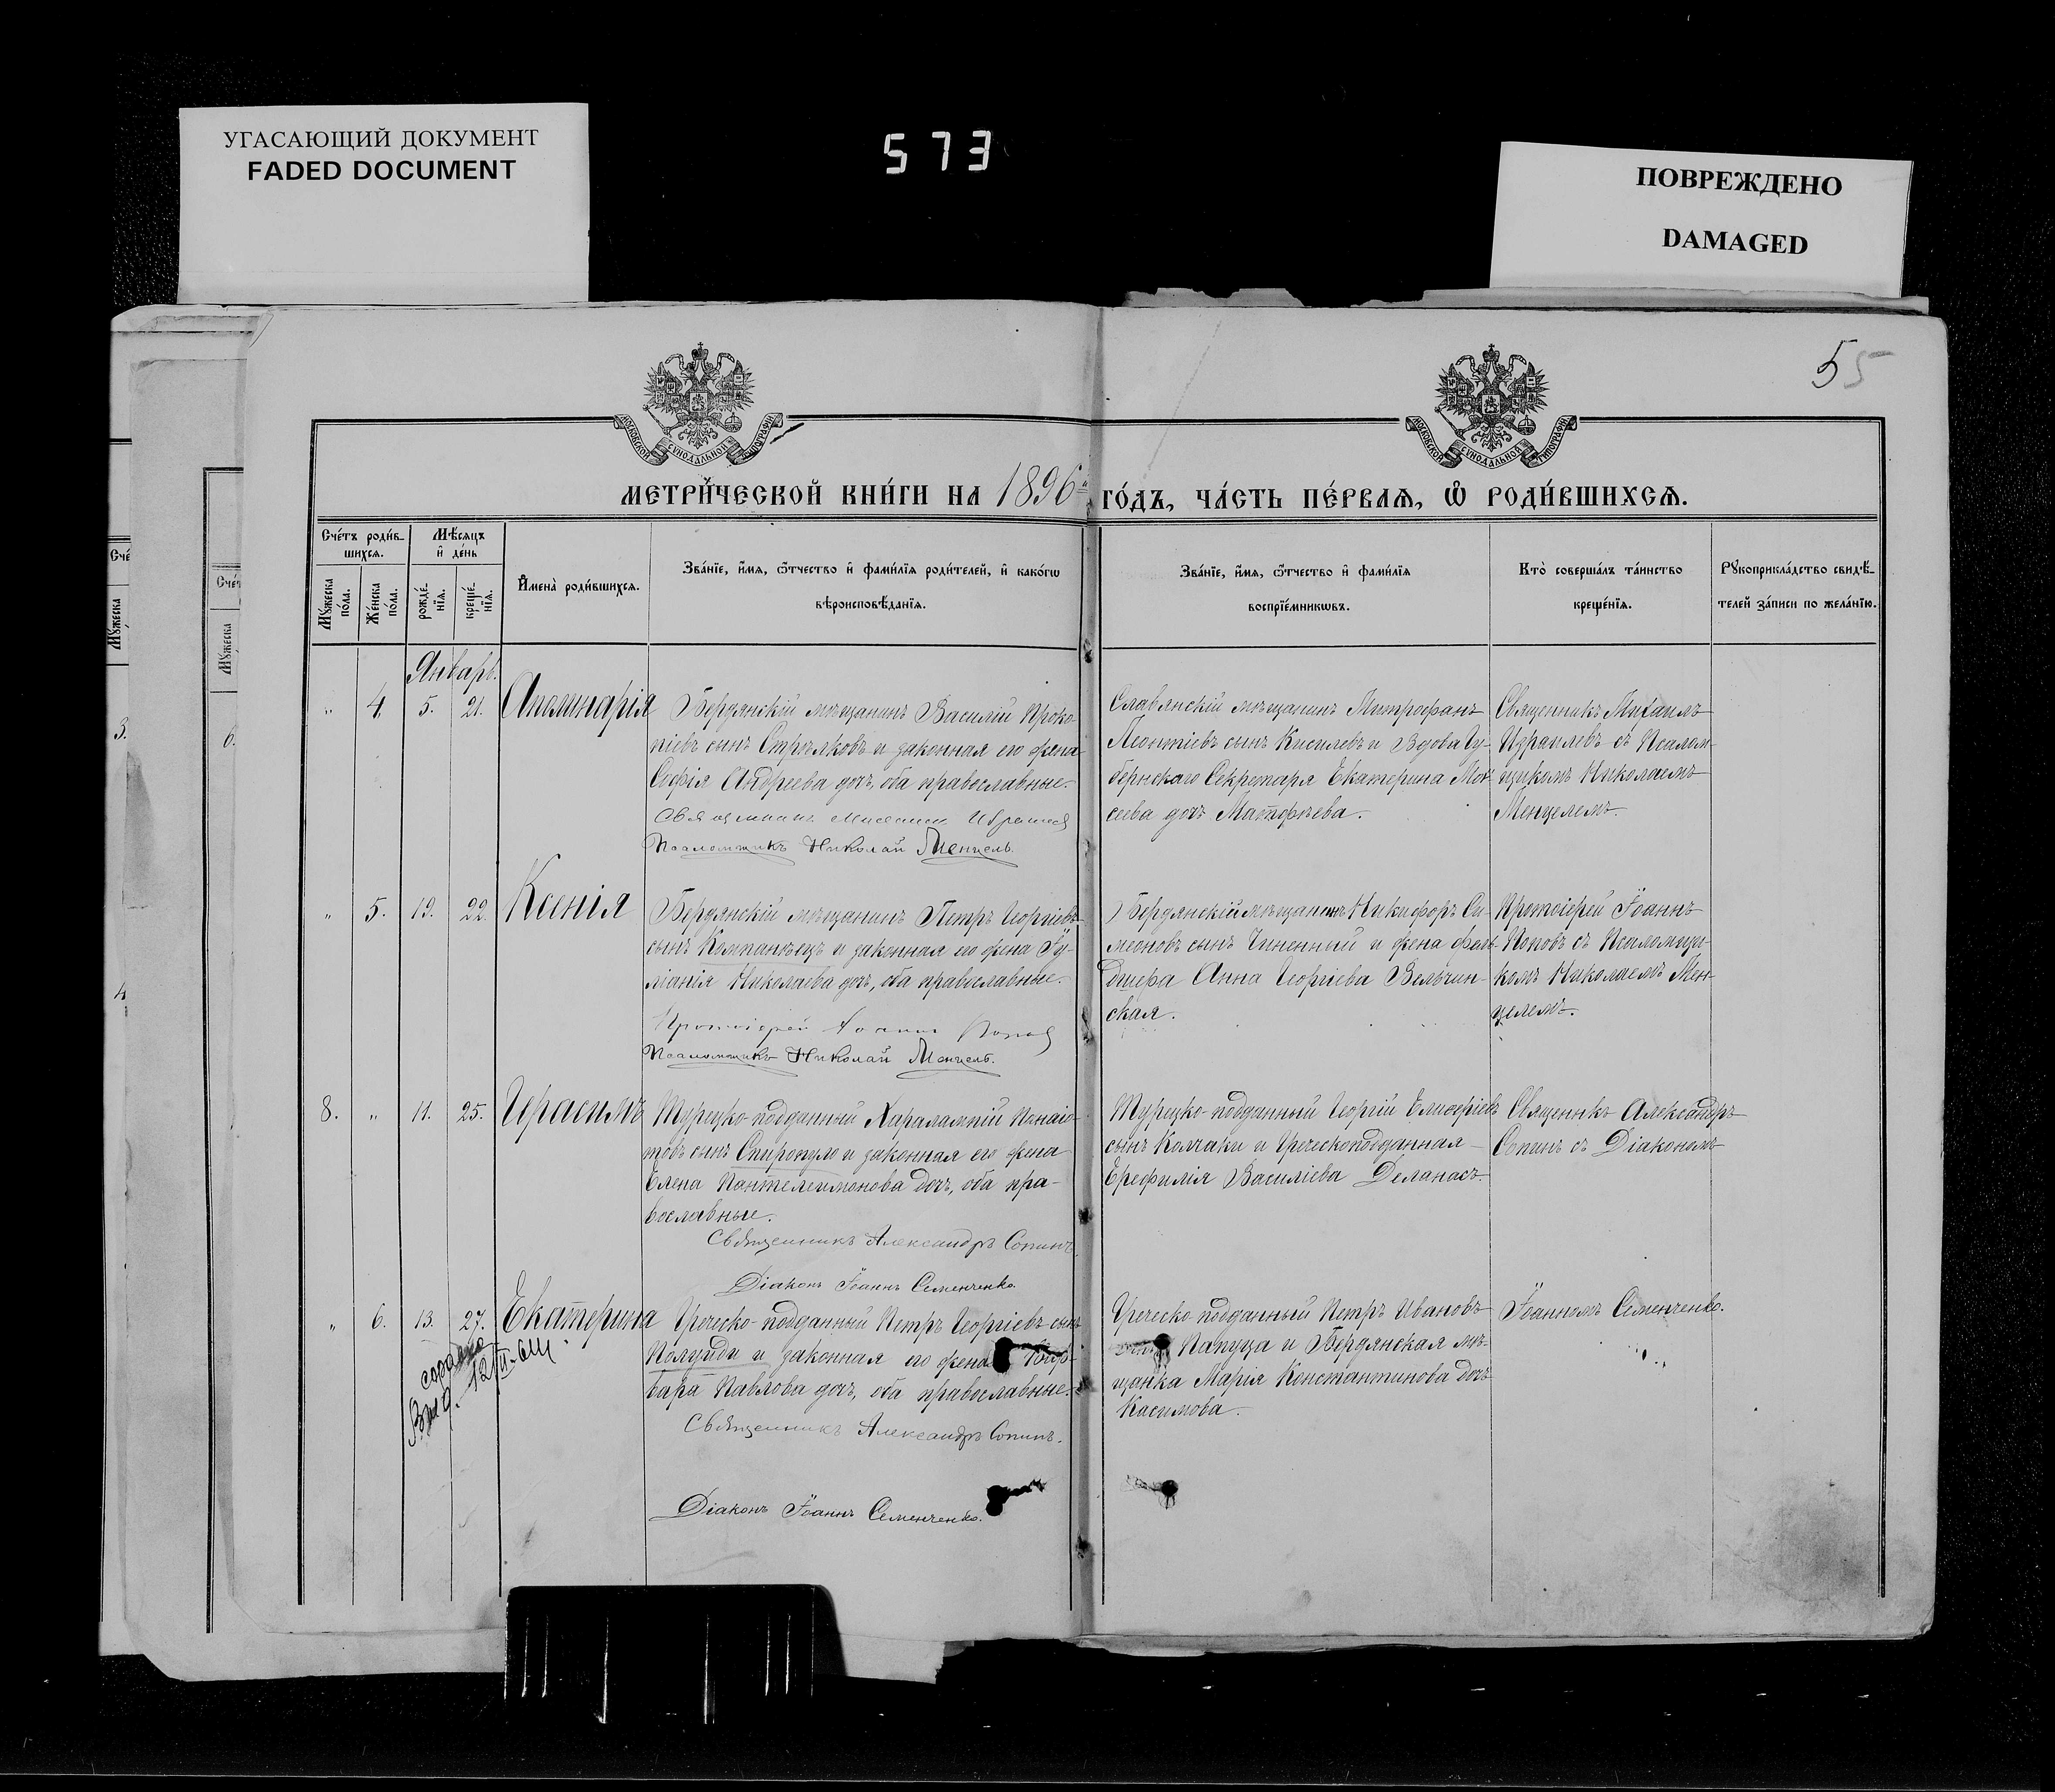 УГАСАЮЩИЙ ДОКУМЕНТ
FADED DOCUMENT
573
ПОВРЕЖДЕНО
DAMAGED
55
МОСКОВСКОЙ СѴНОДАЛЬНОЙ ТИПОГРАФІИ
МОСКОВСКОЙ СѴНОДАЛЬНОЙ ТИПОГРАФІИ
МЕТРИ́ЧЕСКОЙ КНИ́ГИ НА 1896й ГО́ДЪ, ЧА́СТЬ ПЕ́РВАѦ, Ѡ҆ РОДИ́ВШИХСѦ.
Сче́тъ роди́в-
шихсѧ.
Мꙋ́жеска по́ла.
Же́нска по́ла.
Мѣ́сѧцъ
и҆ де́нь
рожде́-
нїѧ.
креще́-
нїѧ.
И҆мена̀ роди́вшихсѧ.
Зва́нїе, и҆́мѧ, ѻ҆́тчество и҆ фами́лїѧ роди́телей, и҆ како́гѡ
вѣроисповѣ́данїѧ.
Зва́нїе, и҆́мѧ, ѻ҆́тчество и҆ фами́лїѧ
воспрїе́мникѡвъ.
Кто̀ соверша́лъ та́инство
креще́нїѧ.
Рꙋкоприкла́дство свидѣ́-
телей за́писи по жела́нїю.
Январь.
" 4. 5. 21. Аполинарія
Бердянскій мѣщанинъ Василій Проко-
піевъ сынъ Стрѣлковъ и законная его жена
Софія Андреева дочь, оба православные.
Священникъ Михаилъ Израилев
Псаломщикъ Николай Менцель.
Славянскій мѣщанинъ Митрофанъ
Леонтіевъ сынъ Киселевъ и Вдова Гу-
бернскаго Секретаря Екатерина Мои-
сеева дочь Матфѣева.
Священникъ Михаилъ
Израилевъ съ Псалом-
щикомъ Николаемъ
Менцелемъ.
" 5. 19. 22. Ксенія
Бердянскій мѣщанинъ Петръ Георгіевъ
сынъ Компанѣецъ и законная его жена Іу-
ліанія Николаева дочь, оба православные.
Протоіерей Іоаннъ Попов
Псаломщикъ Николай Менцель.
Бердянскій мѣщанинъ Никифоръ Си-
меоновъ сынъ Чиненный и жена фель-
дшера Анна Георгіева Вельчин-
ская.
Протоіерей Іоаннъ
Поповъ съ Псаломщи-
комъ Николаемъ Мен-
целемъ.
8. " 11. 25. Герасимъ
Турецко-подданный Харалампій Панаіо-
товъ сынъ Спиропуло и законная его жена
Елена Пантелеимонова дочь, оба пра-
вославные.
Священникъ Александръ Сопинъ.
Діаконъ Іоаннъ Семенченко.
Турецко-подданный Георгій Елисеріевъ
сынъ Колчаки и Греческоподданная
Ерефилія Василіева Деланасъ.
Священикъ Александръ
Сопинъ съ Діакономъ
" 6. 13. 27. Екатерина
Греческо-подданный Петръ Георгіевъ сынъ
Полуиди и законная его жена Вар-
вара Павлова дочь, оба православные.
Священникъ Александръ Сопинъ.
Діаконъ Іоаннъ Семенченко.
Греческо-подданный Петръ Ивановъ
Папуца и Бердянская мѣ-
щанка Марія Константинова дочь
Касимова.
Іоанномъ Семенченко.